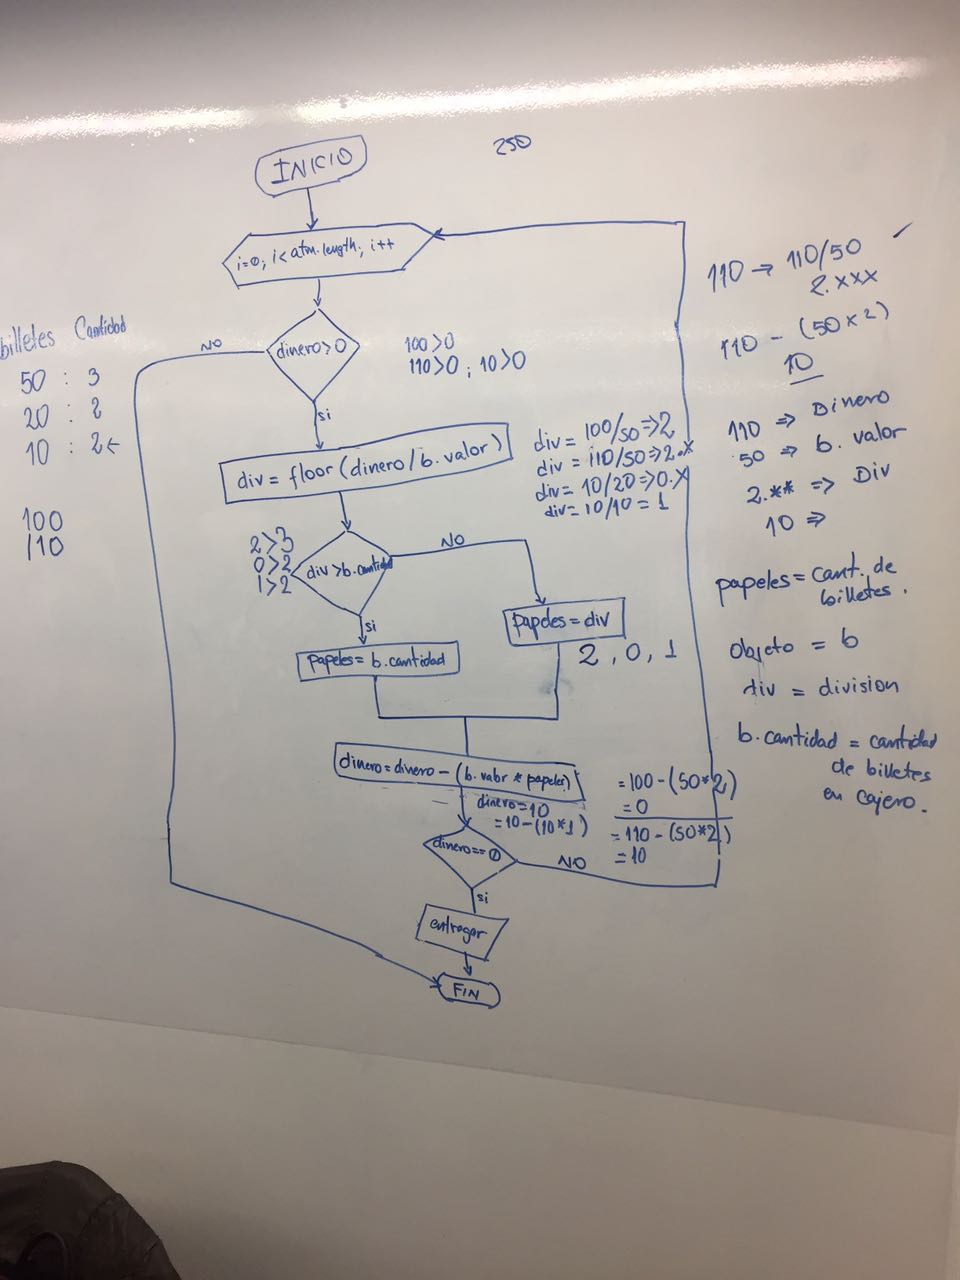 250
INICIO
i=0; i<atm.length; i++
dinero>0
NO
si
100>0
110>0 ; 10>0
billetes Cantidad
50 : 3
20 : 2
10 : 2←
100
110
div = floor(dinero/b.valor)
div = 100/50=>2
div = 110/50=>2.x
div = 10/20=>0.x
div= 10/10 = 1
2>3
0>2
1>2
div>b.cantidad
NO
si
papeles = div
2, 0, 1
papeles= b.cantidad
dinero=dinero-(b.valor * papeles)
dinero=10
=10-(10*1)
=100-(50*2)
=0
=110-(50*2)
=10
dinero==0
NO
si
entregar
FIN
110 → 110/50
2.xxx
110 - (50x2)
10
110 => Dinero
50 => b. valor
2.** => Div
10 =>
papeles= cant. de
billetes.
objeto = b
div = division
b.cantidad = cantidad
de billetes
en cajero.